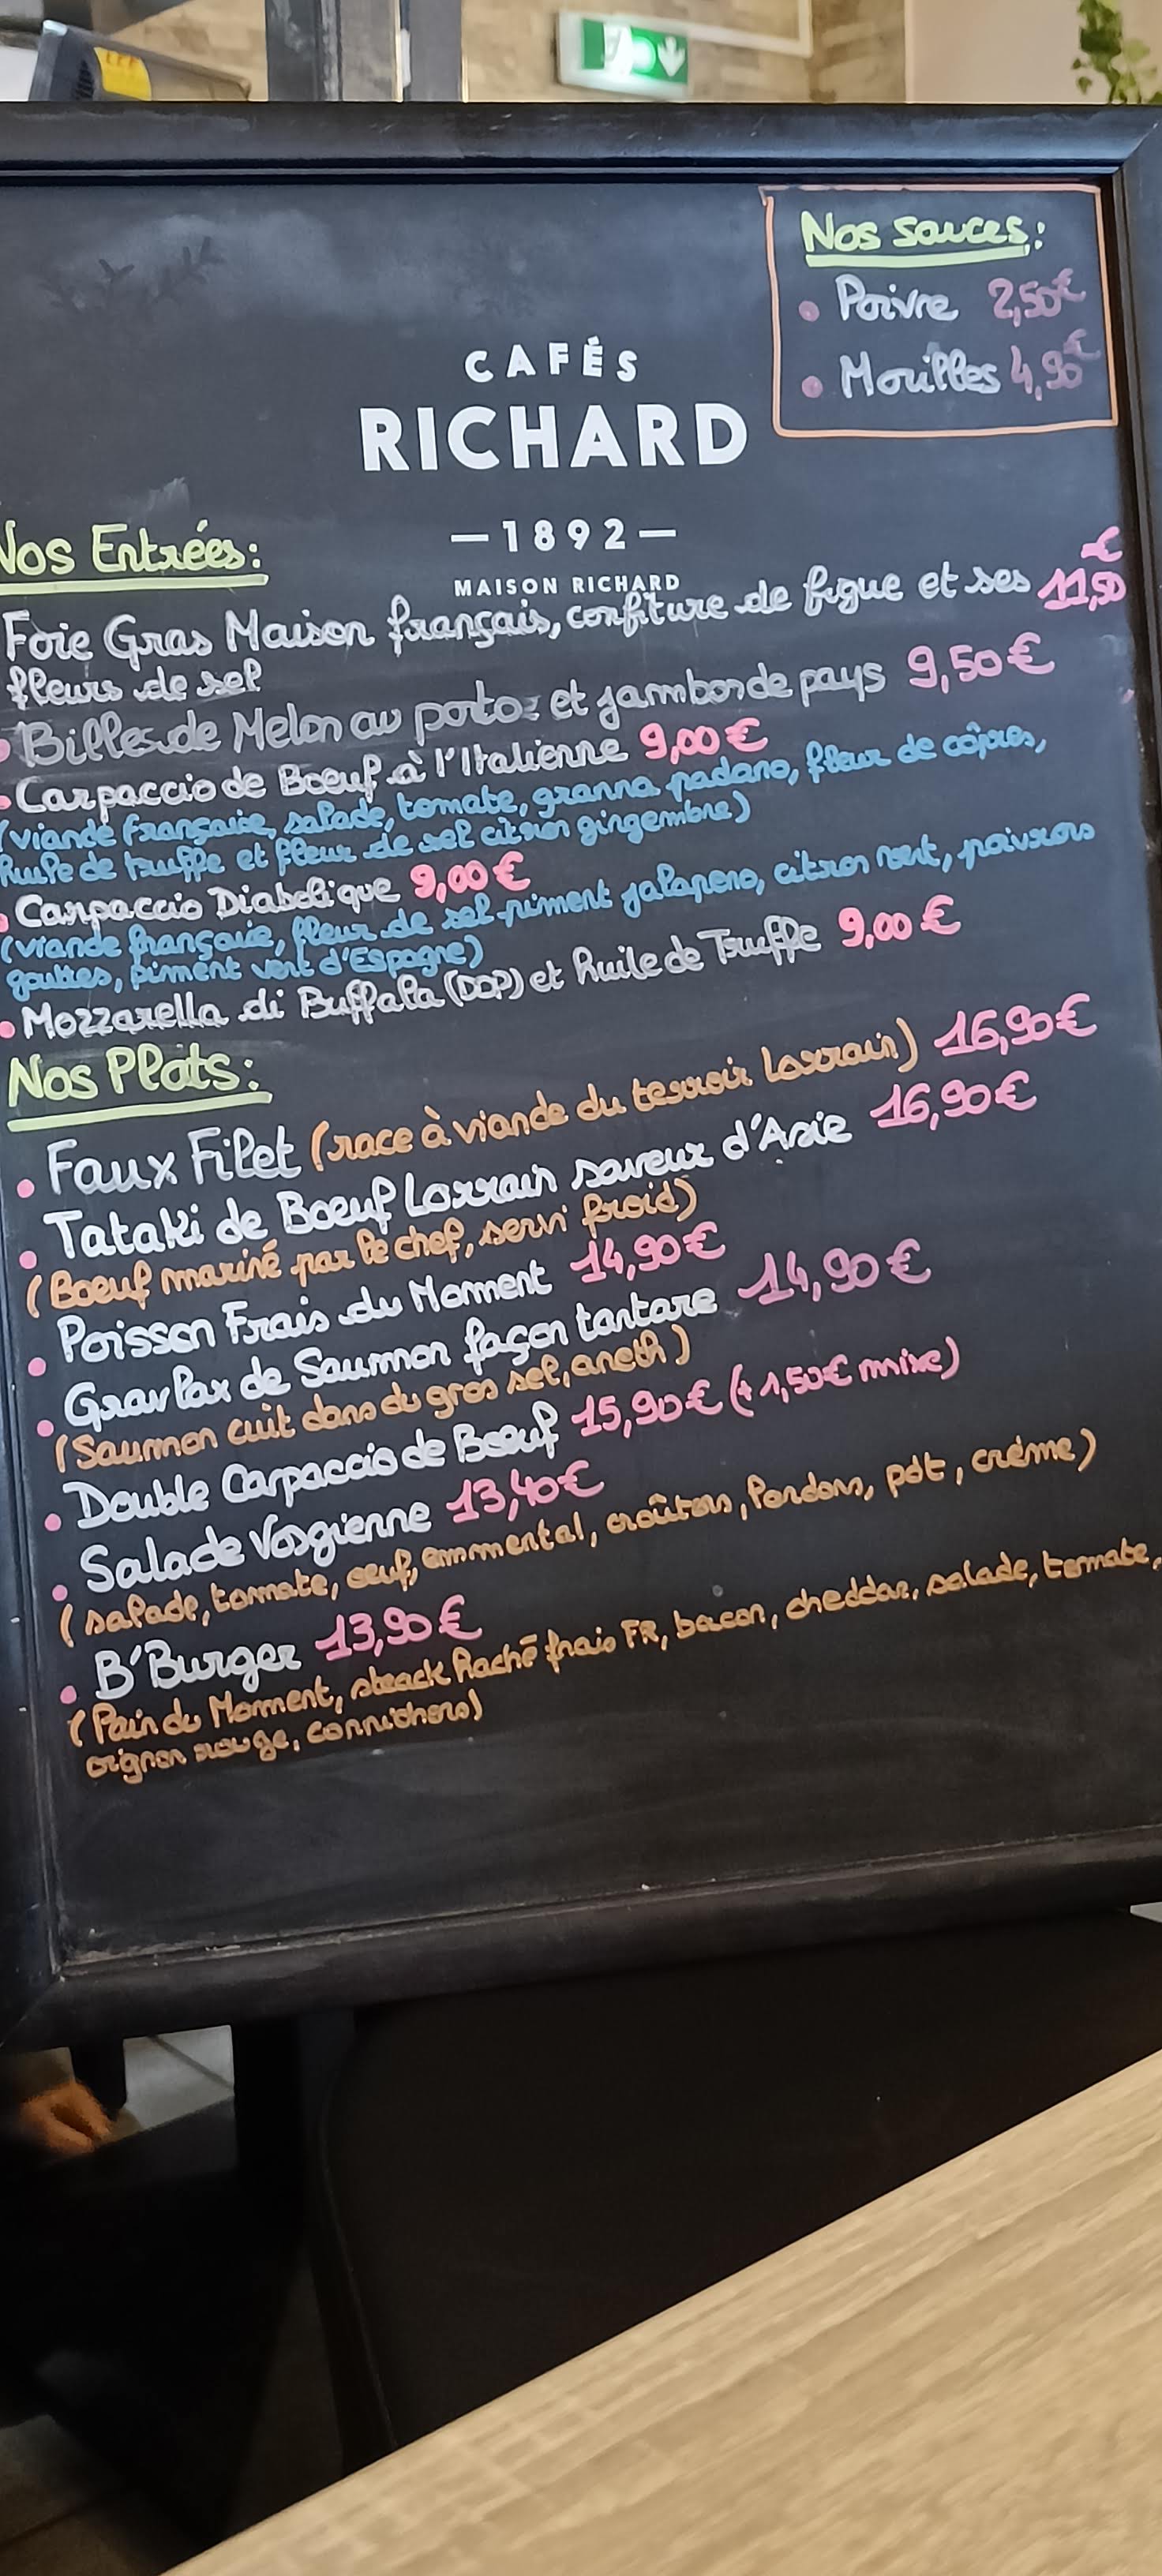 Nos sauces:
• Poivre 2,50€
• Morilles 4,90€
CAFÉS
RICHARD
—1892—
MAISON RICHARD
Nos Entrées:
Foie Gras Maison français, confiture de figue et ses 11,50€
fleurs de sel
• Billes de Melon au porto et jambon de pays 9,50€
• Carpaccio de Boeuf à l'Italienne 9,00€
(viande française, salade, tomate, granna padano, fleur de câpres,
huile de truffe et fleur de sel citron gingembre)
• Carpaccio Diabolique 9,00€
(viande française, fleur de sel piment jalapeno, citron vert, poivrons
gouttes, piment vert d'Espagne)
• Mozzarella di Buffala (DOP) et huile de Truffe 9,00€
Nos Plats:
• Faux Filet (race à viande du terroir Lorrain) 16,90€
• Tataki de Boeuf Lorrain saveur d'Asie 16,90€
(Boeuf mariné par le chef, servi froid)
• Poisson Frais du Moment 14,90€
• Gravlax de Saumon façon tartare 14,90€
(Saumon cuit dans du gros sel, aneth)
• Double Carpaccio de Boeuf 15,90€ (+1,50€ mixe)
• Salade Vosgienne 13,40€
(salade, tomate, oeuf, emmental, croûtons, lardons, pdt, crème)
• B'Burger 13,90€
(Pain du Moment, steack haché frais FR, bacon, cheddar, salade, tomate,
oignon rouge, cornichons)